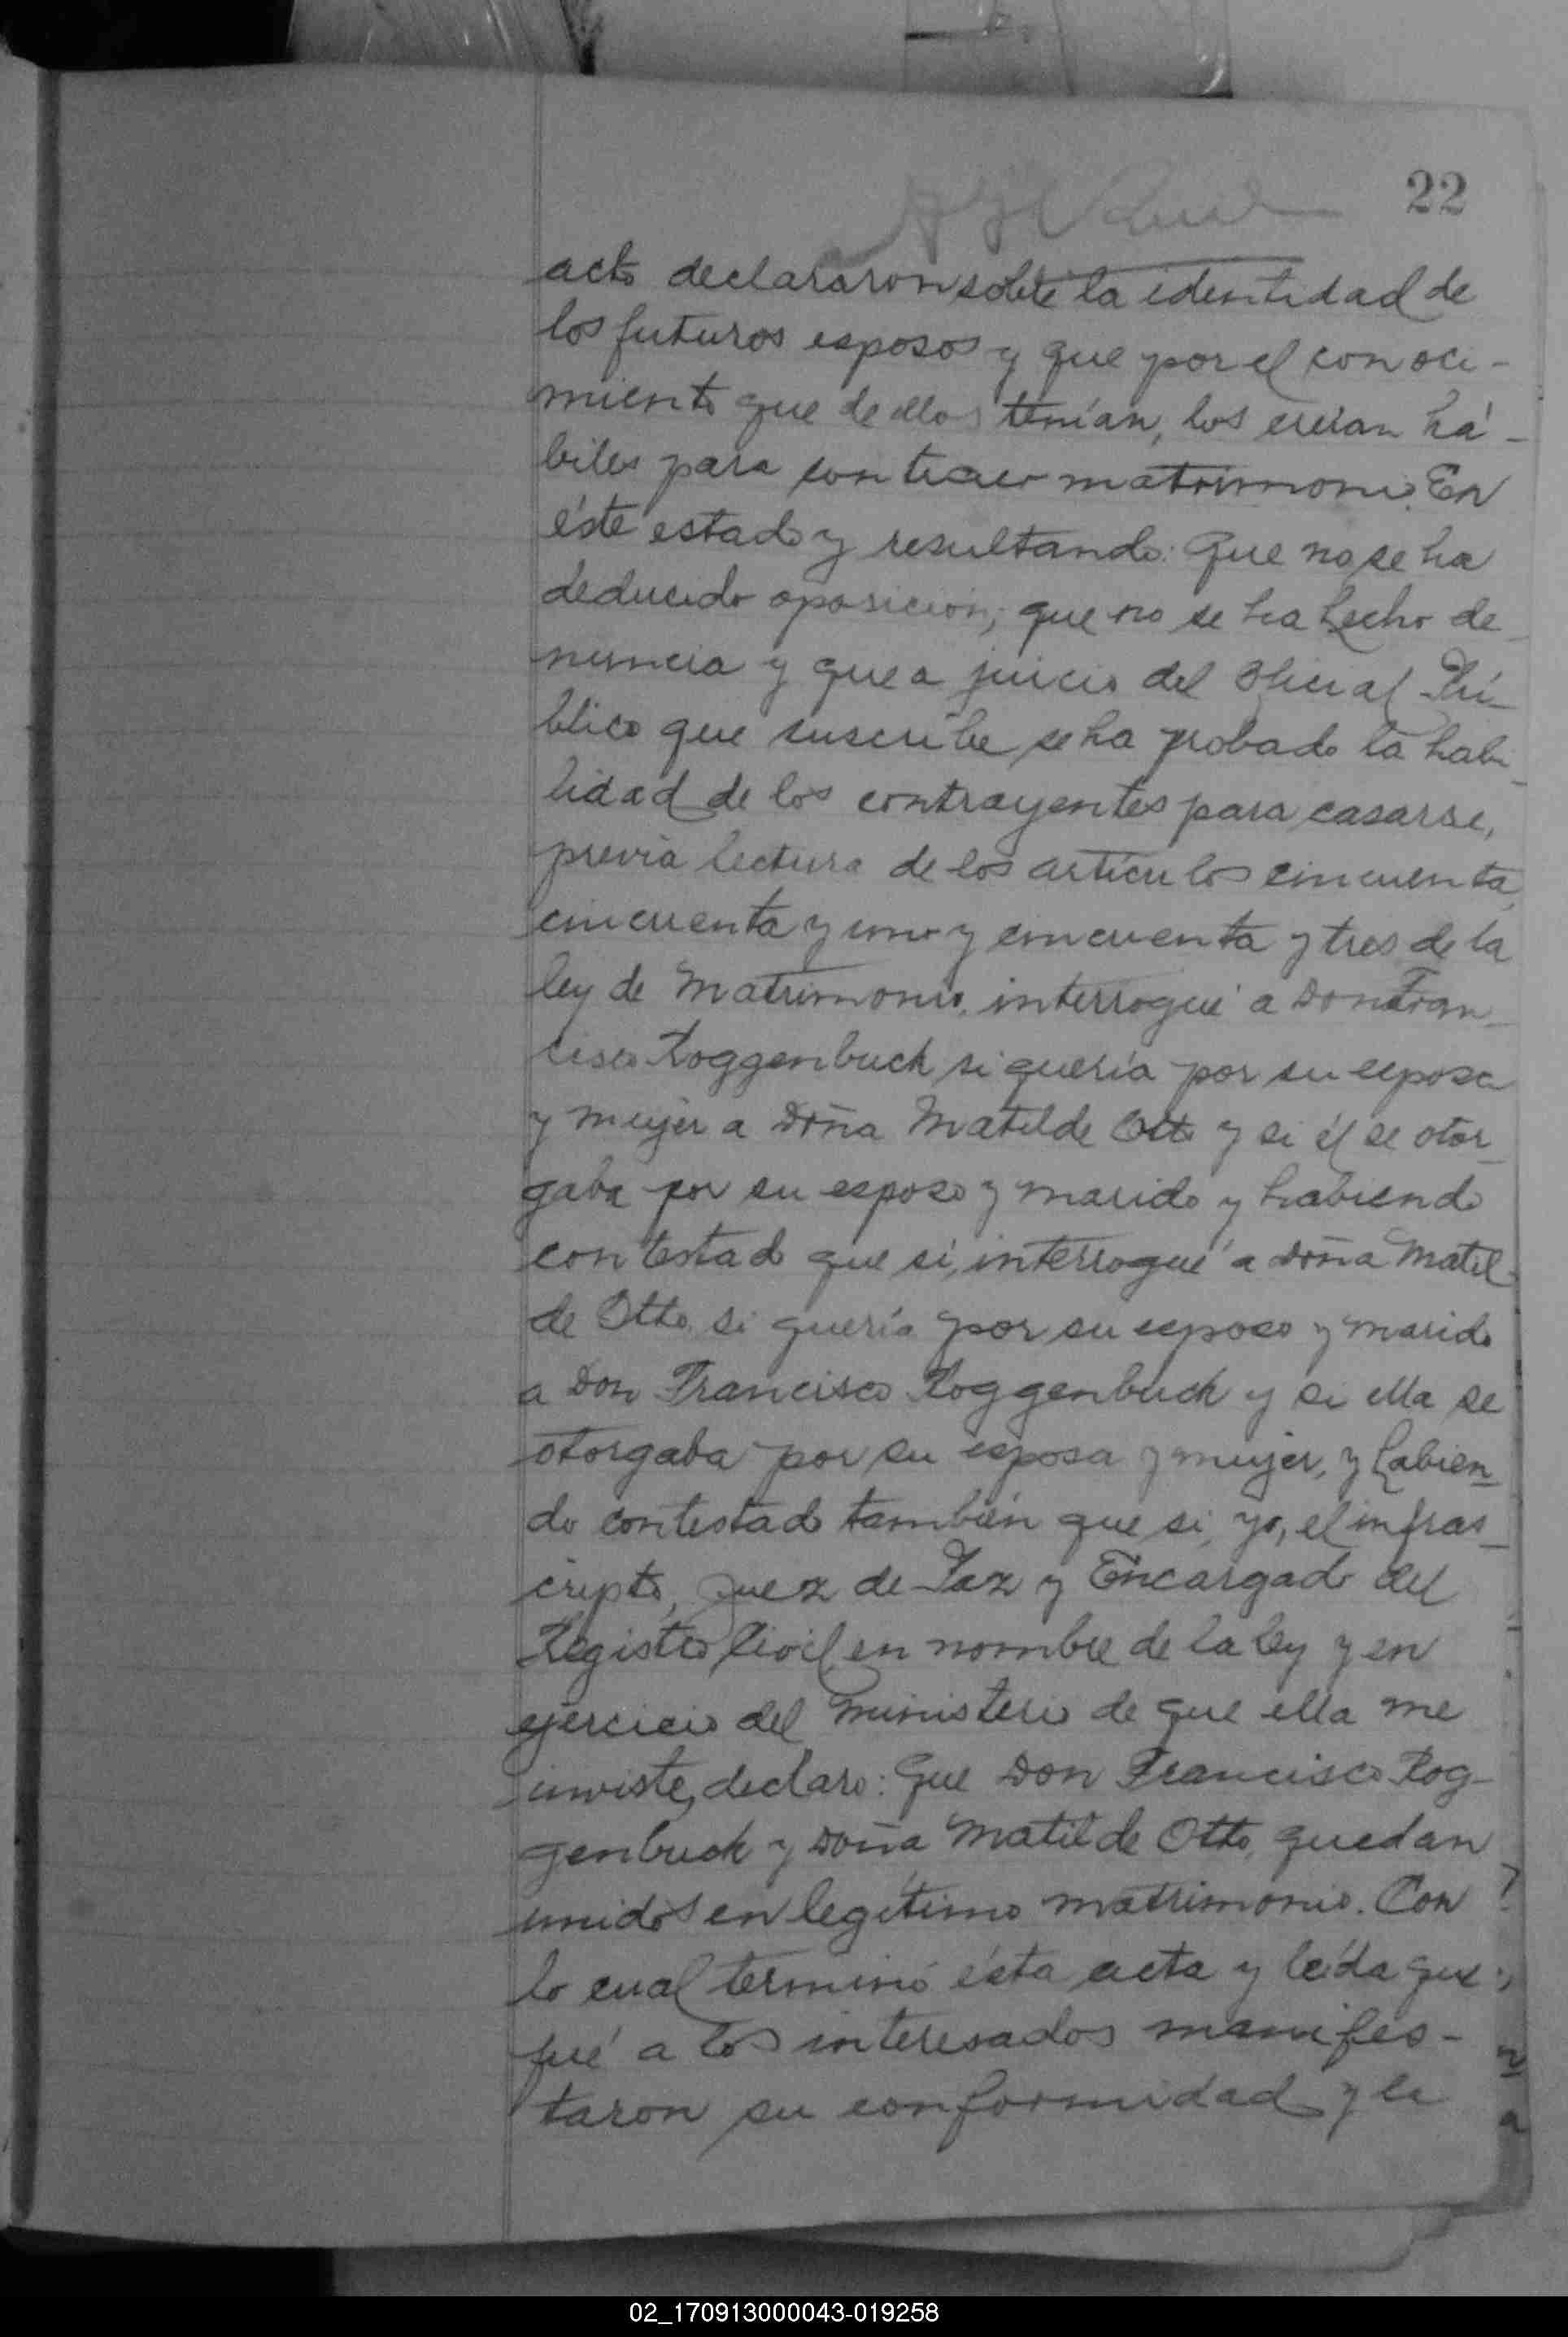 22
acto declararon sobre la identidad de
los futuros esposos y que por el conoci-
miento que de ellos tenían, los creían há-
biles para contraer matrimonio. En
éste estado y resultando: Que no se ha
deducido oposición; que no se ha hecho de-
nuncia y que a juicio del Oficial Pú-
blico que suscribe se ha probado la habi-
lidad de los contrayentes para casarse,
previa lectura de los artículos cincuenta,
cincuenta y uno y cincuenta y tres de la
ley de Matrimonio, interrogué a Don Fran-
cisco Roggenbuck si quería por su esposa
y mujer a Doña Matilde Otto y si él se otor-
gaba por su esposo y marido y habiendo
contestado que sí, interrogué a Doña Matil-
de Otto si quería por su esposo y marido
a Don Francisco Roggenbuck y si ella se
otorgaba por su esposa y mujer, y habien-
do contestado también que si, yo, el infras-
cripto, Juez de Paz y Encargado del
Registro Civil, en nombre de la ley y en
ejercicio del ministerio de que ella me
inviste, declaro: Que Don Francisco Rog-
genbuck y Doña Matilde Otto, quedan
unidos en legítimo matrimonio. Con
lo cual terminó ésta acta y leída que
fué a los interesados manifes-
taron su conformidad y la
02_170913000043-019258